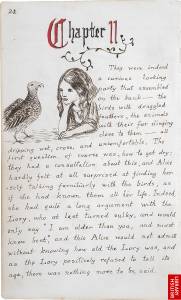 22
Chapter II
They were indeed
a curious looking
party that assembled
on the bank — the
birds with draggled
feathers, the animals
with their fur clinging
close to them — all
dripping wet, cross, and uncomfortable. The
first question of course was, how to get dry:
they had a consultation about this, and Alice
hardly felt at all surprised at finding her-
self talking familiarly with the birds, as
if she had known them all her life. Indeed,
she had quite a long argument with the
Lory, who at last turned sulky, and would
only say "I am older than you, and must
know best," and this Alice would not admit
without knowing how old the Lory was, and
as the Lory positively refused to tell its
age, there was nothing more to be said.
BRITISH
LIBRARY